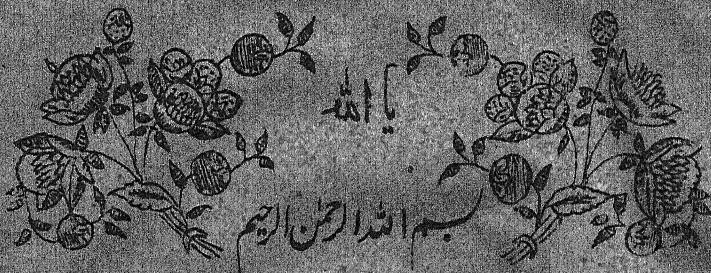 یا الله
بسم الله الرحمٰن الرحیم